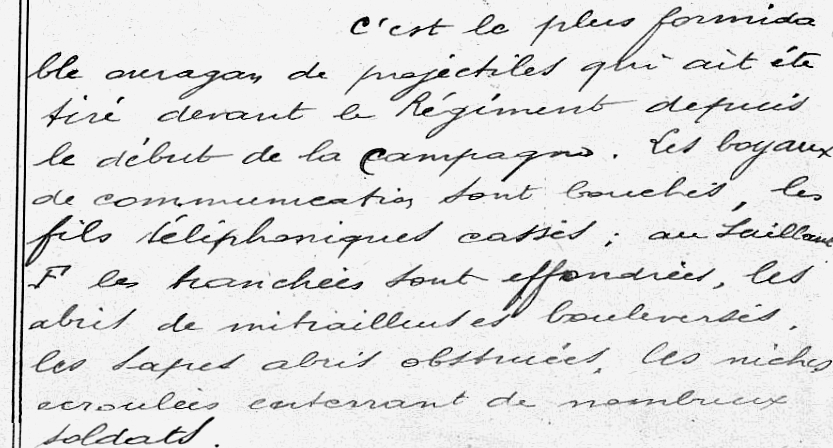 C'est le plus formida
ble ouragan de projectiles qui ait été
tiré devant le Régiment depuis
le début de la campagne. Les boyaux
de communication sont bouchés, les
fils téléphoniques cassés ; au Saillant
F les tranchées sont effondrées, les
abris de mitrailleuses bouleversés,
les sapes abris obstruées, les niches
écroulées enterrant de nombreux
soldats.